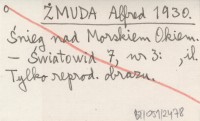 ŻMUDA Alfred 1930.
Śnieg nad Morskiem Okiem.
– Światowid 7, nr 3: , il.
Tylko reprod. obrazu.